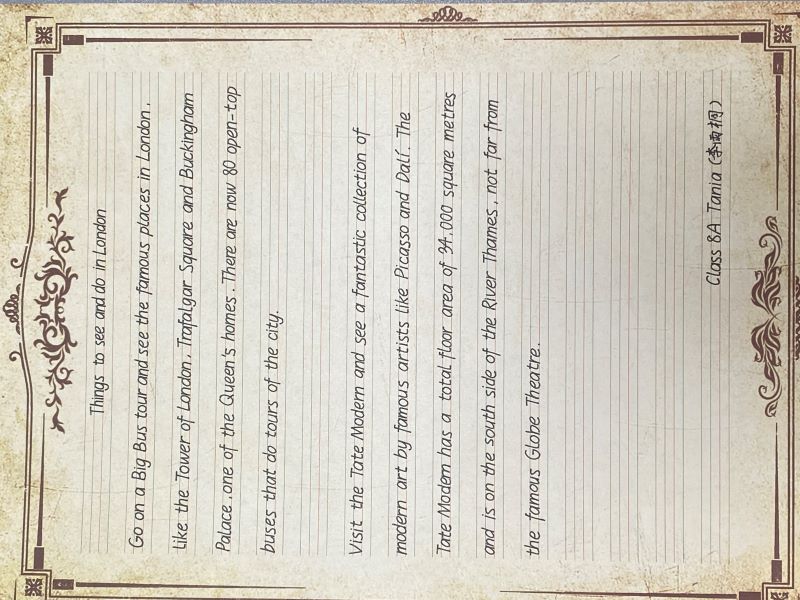 Things to see and do in London
Go on a Big Bus tour and see the famous places in London,
Like the Tower of London, Trafalgar Square and Buckingham
Palace, one of the Queen's homes. There are now 80 open-top
buses that do tours of the city.
Visit the Tate Modern and see a fantastic collection of
modern art by famous artists like Picasso and Dalí. The
Tate Modern has a total floor area of 34.000 square metres
and is on the south side of the River Thames, not far from
the famous Globe Theatre.
Class 8A Tania (李雨桐)